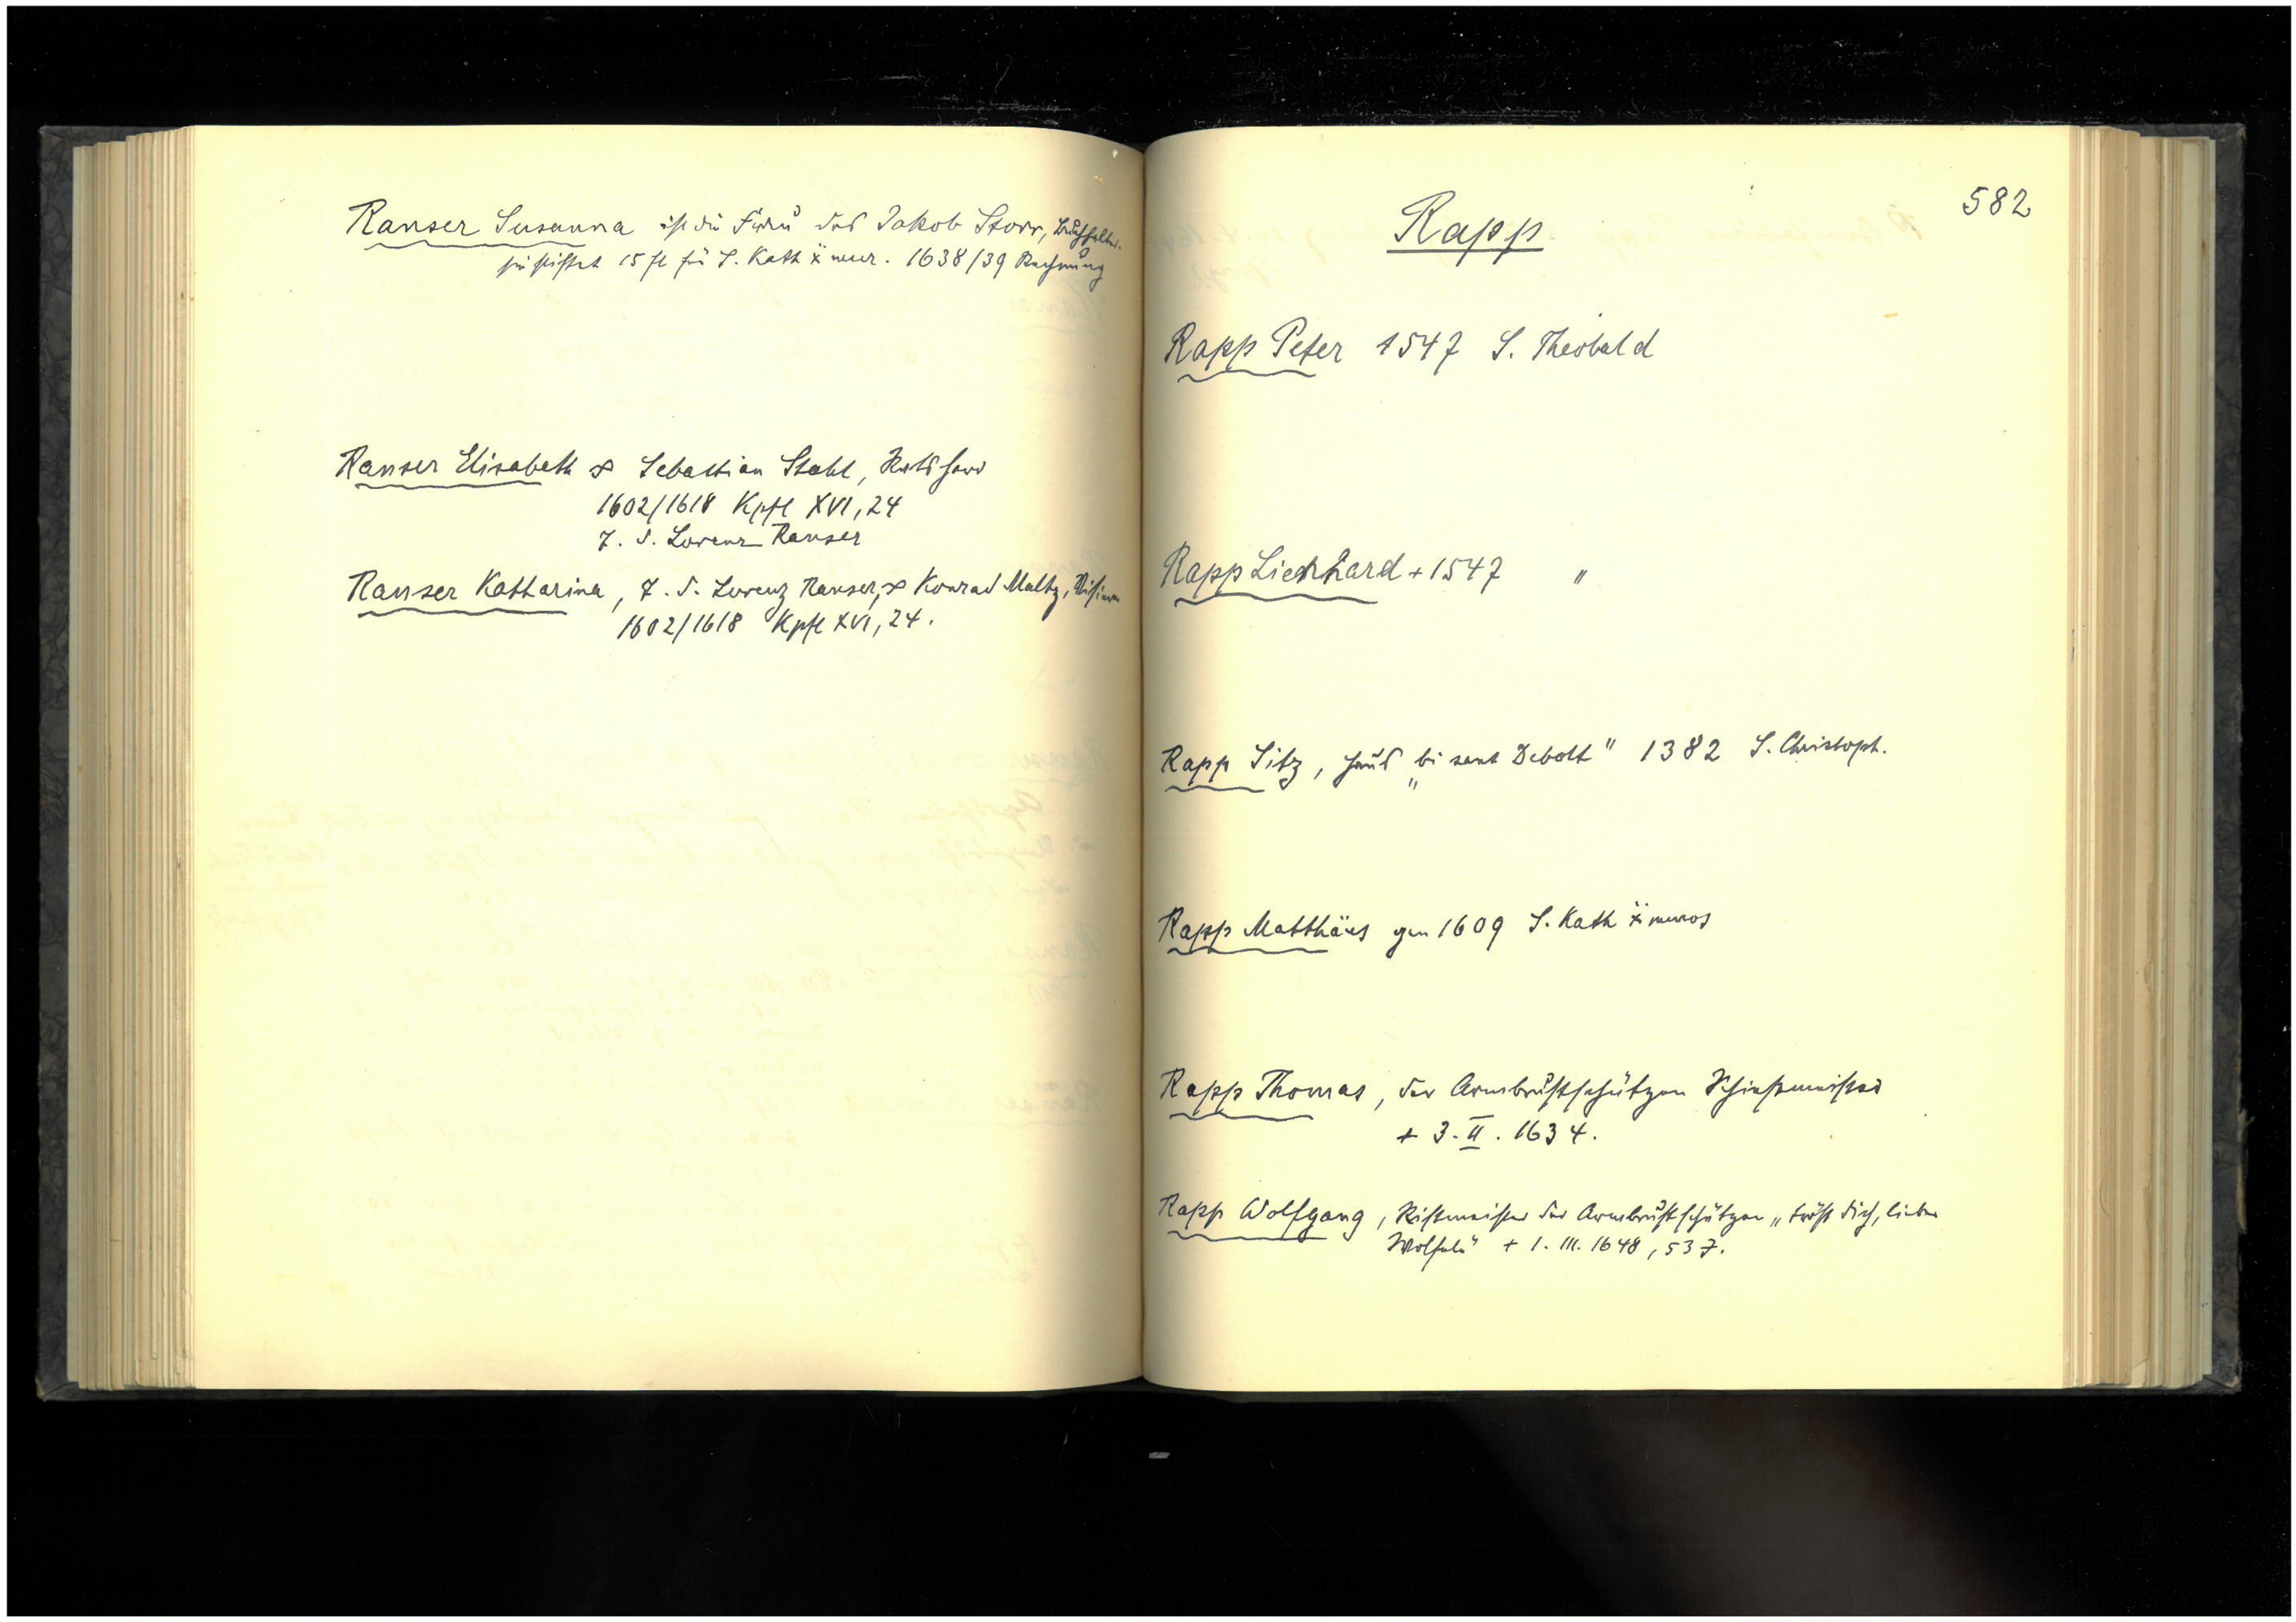 Ranser Susanna ist die Frau des Jakob Storr, Buchhalter.
sie stiftet 15 fl für S. Kath x mur. 1638/39 Rechnung
Ranser Elisabeth ∞ Sebastian Stahl, Ratsherr
1602/1618 Kpfl XVI, 24
T. d. Lorenz Ranser
Ranser Katharina, T. d. Lorenz Ranser, ∞ Konrad Maltz,
1602/1618 Kpfl XVI, 24.
582
Rapp
Rapp Peter 1547 S. Theobald
Rapp Lienhard + 1547 "
Rapp Sitz, Haus „bi sant Debolt" 1382 S. Christoph.
Rapp Matthäus gen 1609 S. Kath x muros
Rapp Thomas, der Armbrustschützen Schiessmeister
+ 3. II. 1634.
Rapp Wolfgang, der Armbrustschützen „tröst dich, lieber
Wölfele" + 1. III. 1648, 53 J.